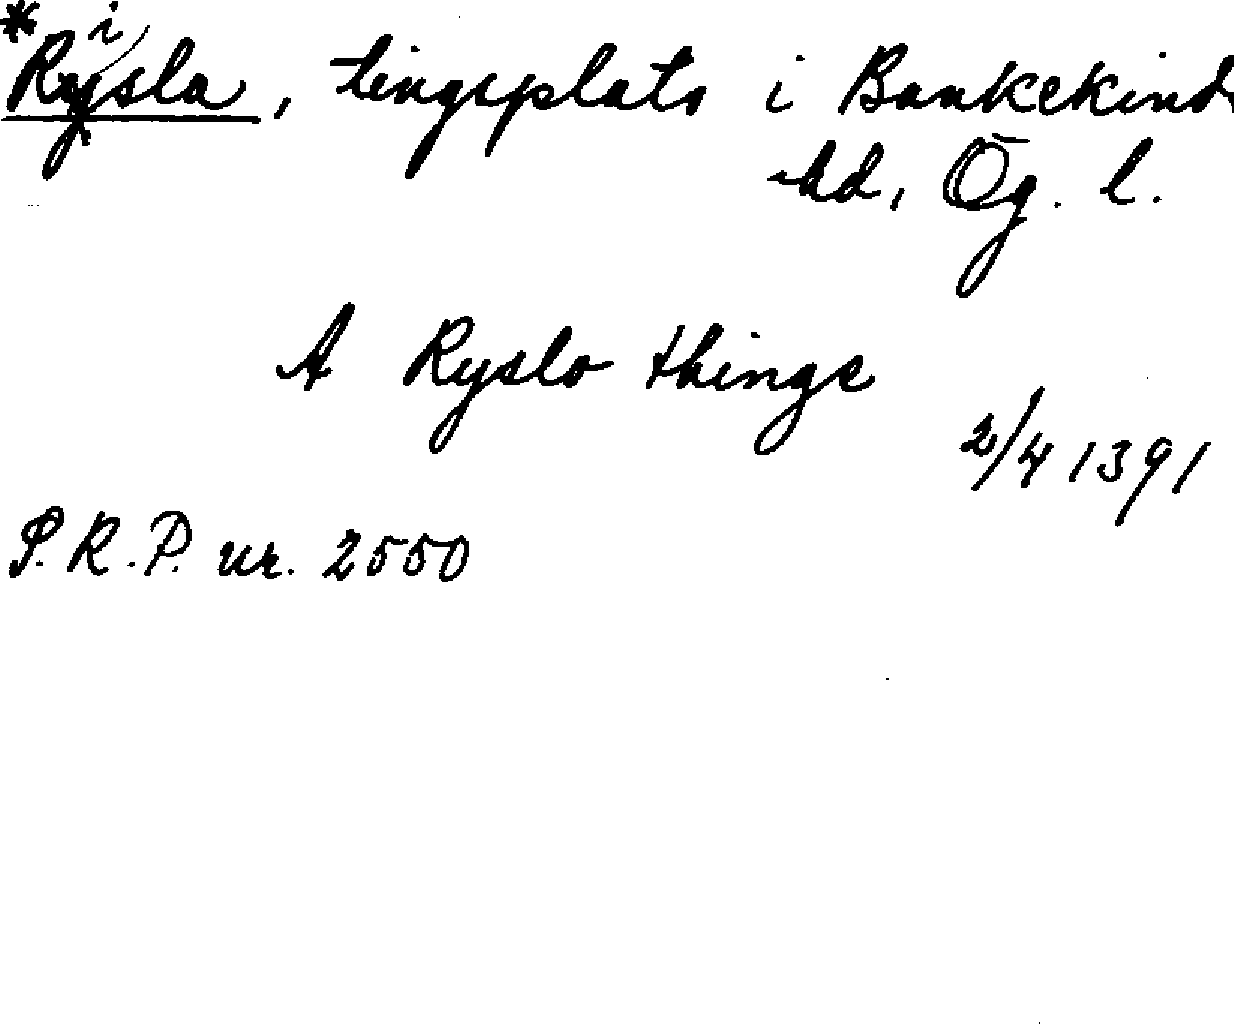 *Ryisla, tingsplats i Bankekinds
hd, Ög. l.
A Ryslo thinge
2/4 1391
S.R.P. nr. 2550